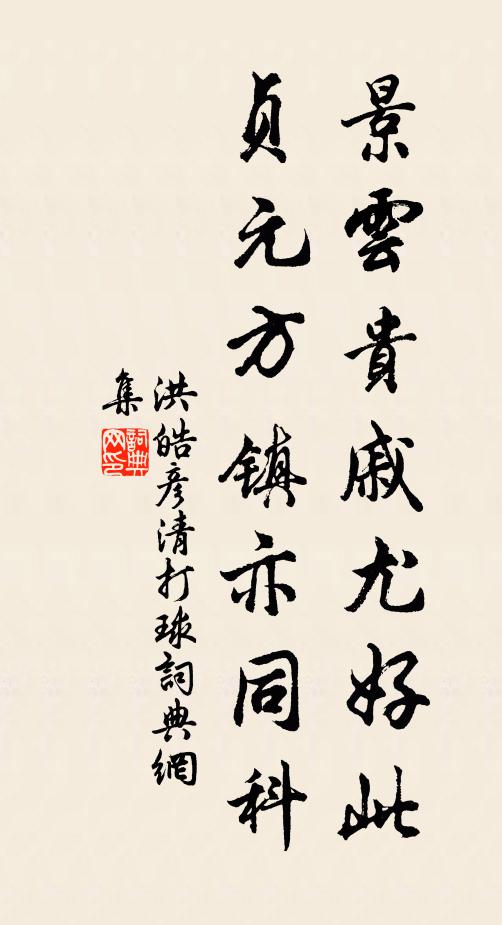 景雲貴戚尤好此
貞元方鎮亦同科
洪皓彥清打球詞典網
集
詞典
网印